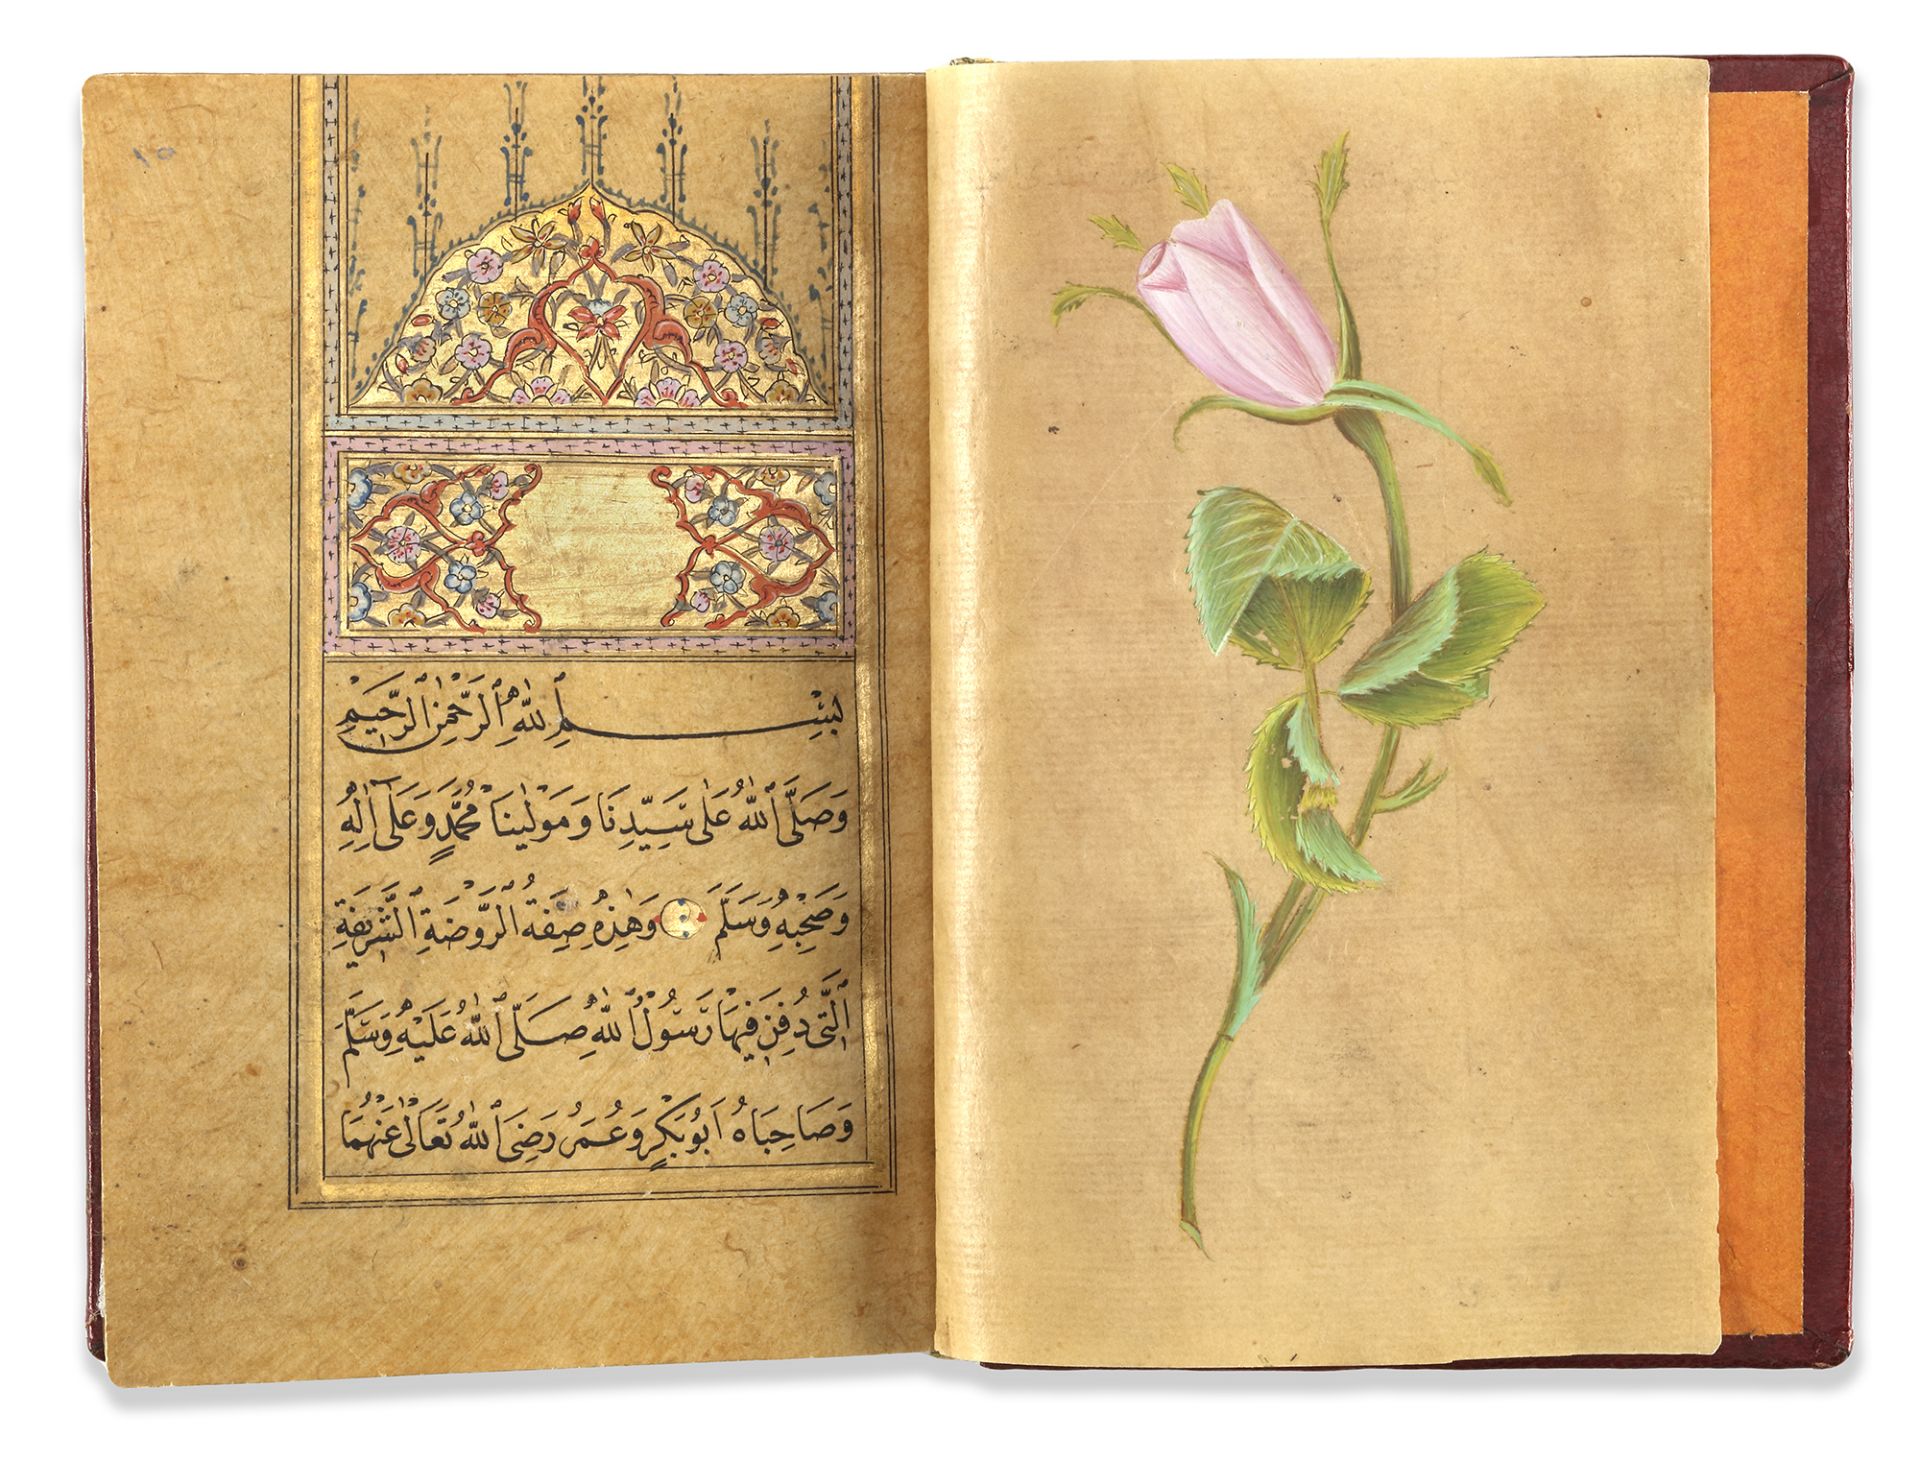 ١٥
بِسْمِ اللّٰهِ الرَّحْمٰنِ الرَّحِيمِ
وَصَلَّى اللّٰهُ عَلٰى سَيِّدِنَا وَمَوْلٰينَا مُحَمَّدٍ وَعَلٰى اٰلِهِ
وَصَحْبِهِ وَسَلَّمَ وَهٰذِهُ صِفَةُ الرَّوْضَةِ الشَّرِيفَةِ
الَّتٖى دُفِنَ فِيهَا رَسُولُ اللّٰهِ صَلَّى اللّٰهُ عَلَيْهِ وَسَلَّمَ
وَصَاحِبَاهُ اَبُو بَكْرٍ وَعُمَرُ رَضِىَ اللّٰهُ تَعَالٰى عَنْهُمَا